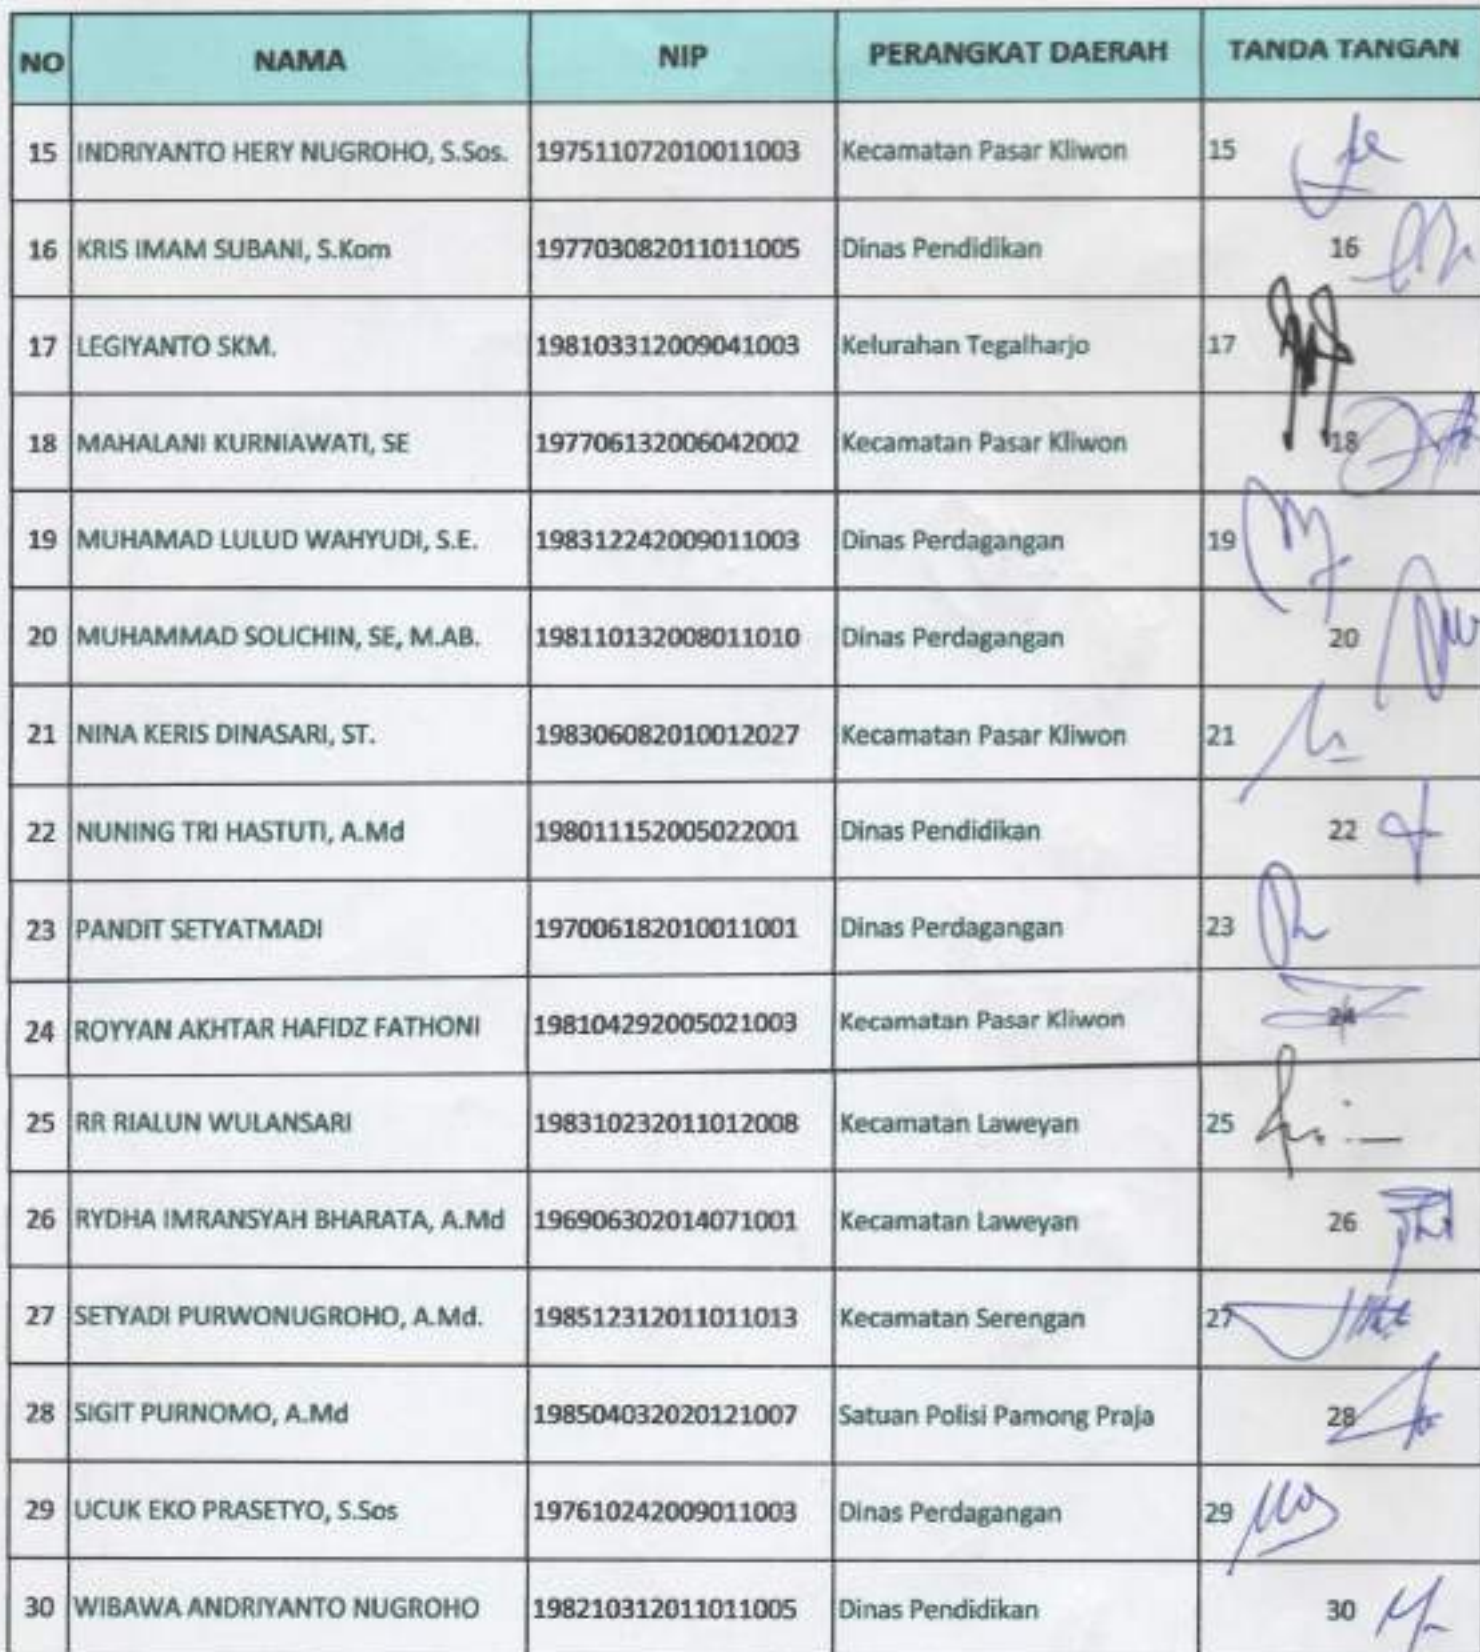 NO NAMA NIP PERANGKAT DAERAH TANDA TANGAN
15 INDRIYANTO HERY NUGROHO, S.Sos. 197511072010011003 Kecamatan Pasar Kliwon 15
16 KRIS IMAM SUBANI, S.Kom 197703082011011005 Dinas Pendidikan 16
17 LEGIYANTO SKM. 198103312009041003 Kelurahan Tegalharjo 17
18 MAHALANI KURNIAWATI, SE 197706132006042002 Kecamatan Pasar Kliwon 18
19 MUHAMAD LULUD WAHYUDI, S.E. 198312242009011003 Dinas Perdagangan 19
20 MUHAMMAD SOLICHIN, SE, M.AB. 198110132008011010 Dinas Perdagangan 20
21 NINA KERIS DINASARI, ST. 198306082010012027 Kecamatan Pasar Kliwon 21
22 NUNING TRI HASTUTI, A.Md 198011152005022001 Dinas Pendidikan 22
23 PANDIT SETYATMADI 197006182010011001 Dinas Perdagangan 23
24 ROYYAN AKHTAR HAFIDZ FATHONI 198104292005021003 Kecamatan Pasar Kliwon 24
25 RR RIALUN WULANSARI 198310232011012008 Kecamatan Laweyan 25
26 RYDHA IMRANSYAH BHARATA, A.Md 196906302014071001 Kecamatan Laweyan 26
27 SETYADI PURWONUGROHO, A.Md. 198512312011011013 Kecamatan Serengan 27
28 SIGIT PURNOMO, A.Md 198504032020121007 Satuan Polisi Pamong Praja 28
29 UCUK EKO PRASETYO, S.Sos 197610242009011003 Dinas Perdagangan 29
30 WIBAWA ANDRIYANTO NUGROHO 198210312011011005 Dinas Pendidikan 30